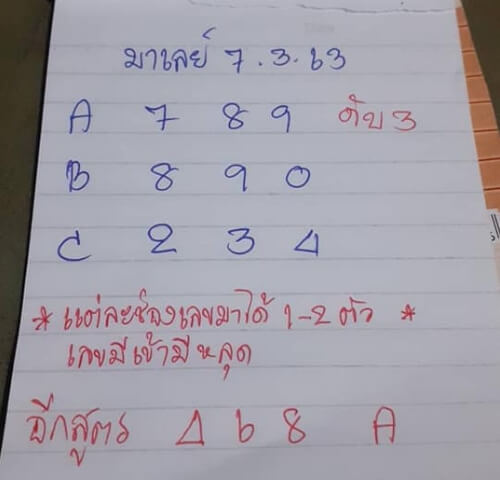 มาเลย์ 7.3.63
A 7 8 9 ดับ 3
B 8 9 0
C 2 3 4
* แต่ละห้องเลขมาได้ 1-2 ตัว *
เลขมีเข้ามีหลุด
อีกสูตร 4 6 8 A